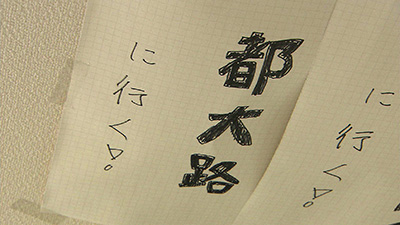 都大路
に行く!
に行く!